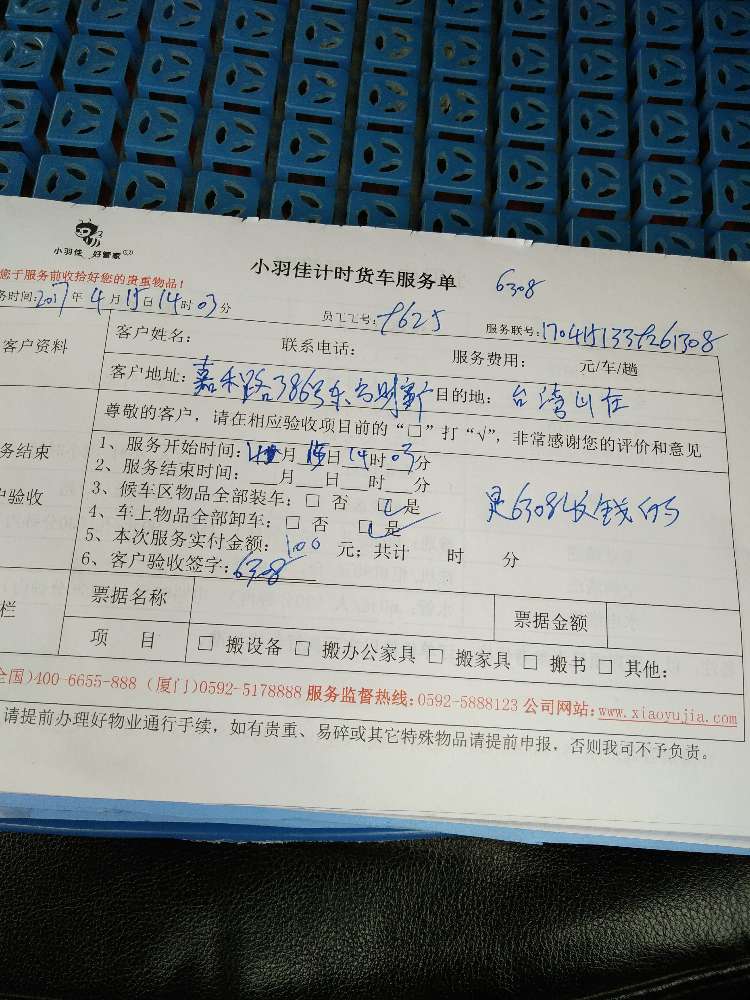 小羽佳 好管家
小羽佳计时货车服务单 6308
您于服务前收拾好您的贵重物品!
务时间:2017年4月15日14时03分 员工工号:9625 服务联号:1704151339261308
客户资料
客户姓名: 联系电话: 服务费用: 元/车/趟
客户地址:嘉禾路386号东方财富 目的地:台湾山庄
尊敬的客户,请在相应验收项目前的“□”打“√”,非常感谢您的评价和意见
务结束
户验收
1、服务开始时间: 月15日14时03分
2、服务结束时间:___月___日___时___分
3、候车区物品全部装车:□ 否 □是 是6308收钱的
4、车上物品全部卸车:□ 否 □是
5、本次服务实付金额:100元;共计 时 分
6、客户验收签字:6308
栏
票据名称 票据金额
项 目 □ 搬设备 □ 搬办公家具 □ 搬家具 □ 搬书 □ 其他:
全国)400-6655-888 (厦门)0592-5178888 服务监督热线:0592-5888123 公司网站:www.xiaoyujia.com
请提前办理好物业通行手续,如有贵重、易碎或其它特殊物品请提前申报,否则我司不予负责。